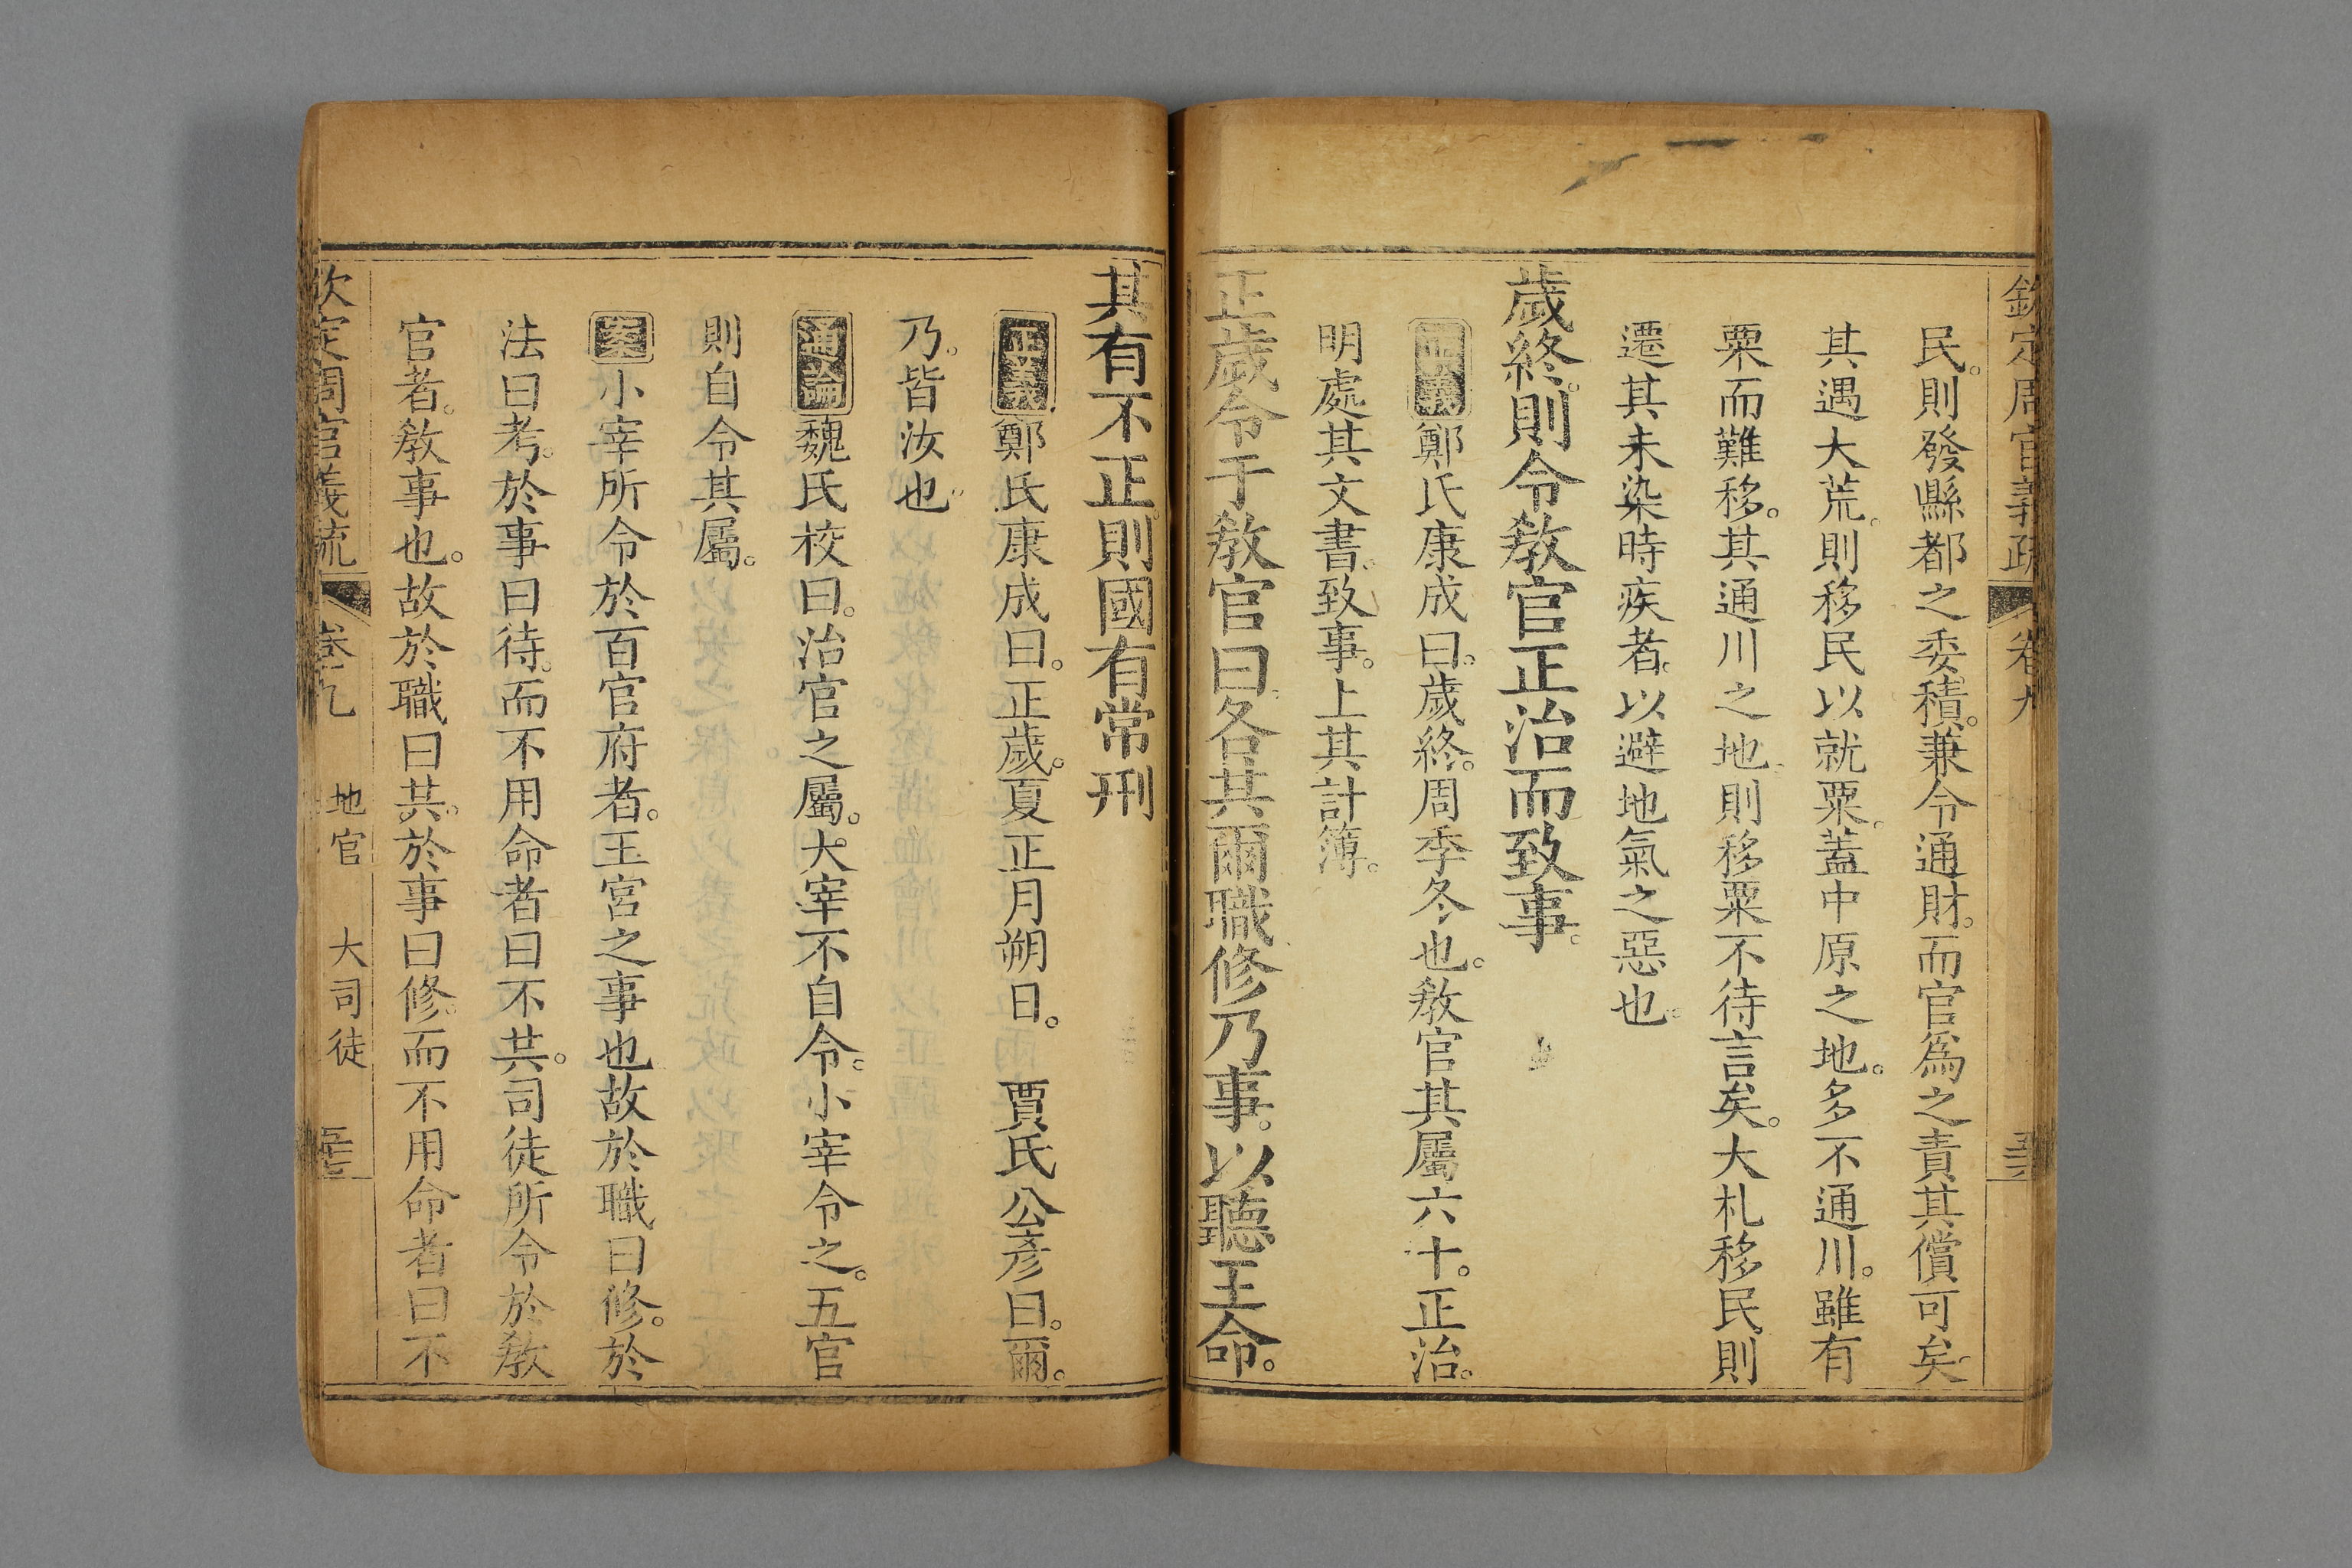 欽定周官義疏 卷九
民。則發縣都之委積。兼令通財。而官為之責其償可矣。
其遇大荒。則移民以就粟。蓋中原之地。多不通川。雖有
粟而難移。其通川之地。則移粟不待言矣。大札移民。則
遷其未染時疾者。以避地氣之惡也。
歲終。則令敎官正治而致事。
正義鄭氏康成曰。歲終。周季冬也。敎官其屬六十。正治。
明處其文書。致事。上其計簿。
正歲令于敎官曰。各共爾職修乃事。以聽王命。
其有不正。則國有常刑
正義鄭氏康成曰。正歲。夏正月朔日。 賈氏公彥曰。爾。
乃。皆汝也。
通論魏氏校曰。治官之屬。大宰不自令。小宰令之。五官
則自令其屬。
案小宰所令於百官府者。王宮之事也故於職曰修。於
法曰考。於事曰待。而不用命者曰不共。司徒所令於敎
官者。敎事也。故於職曰共。於事曰修。而不用命者曰不
欽定周官義疏 卷九 地官 大司徒